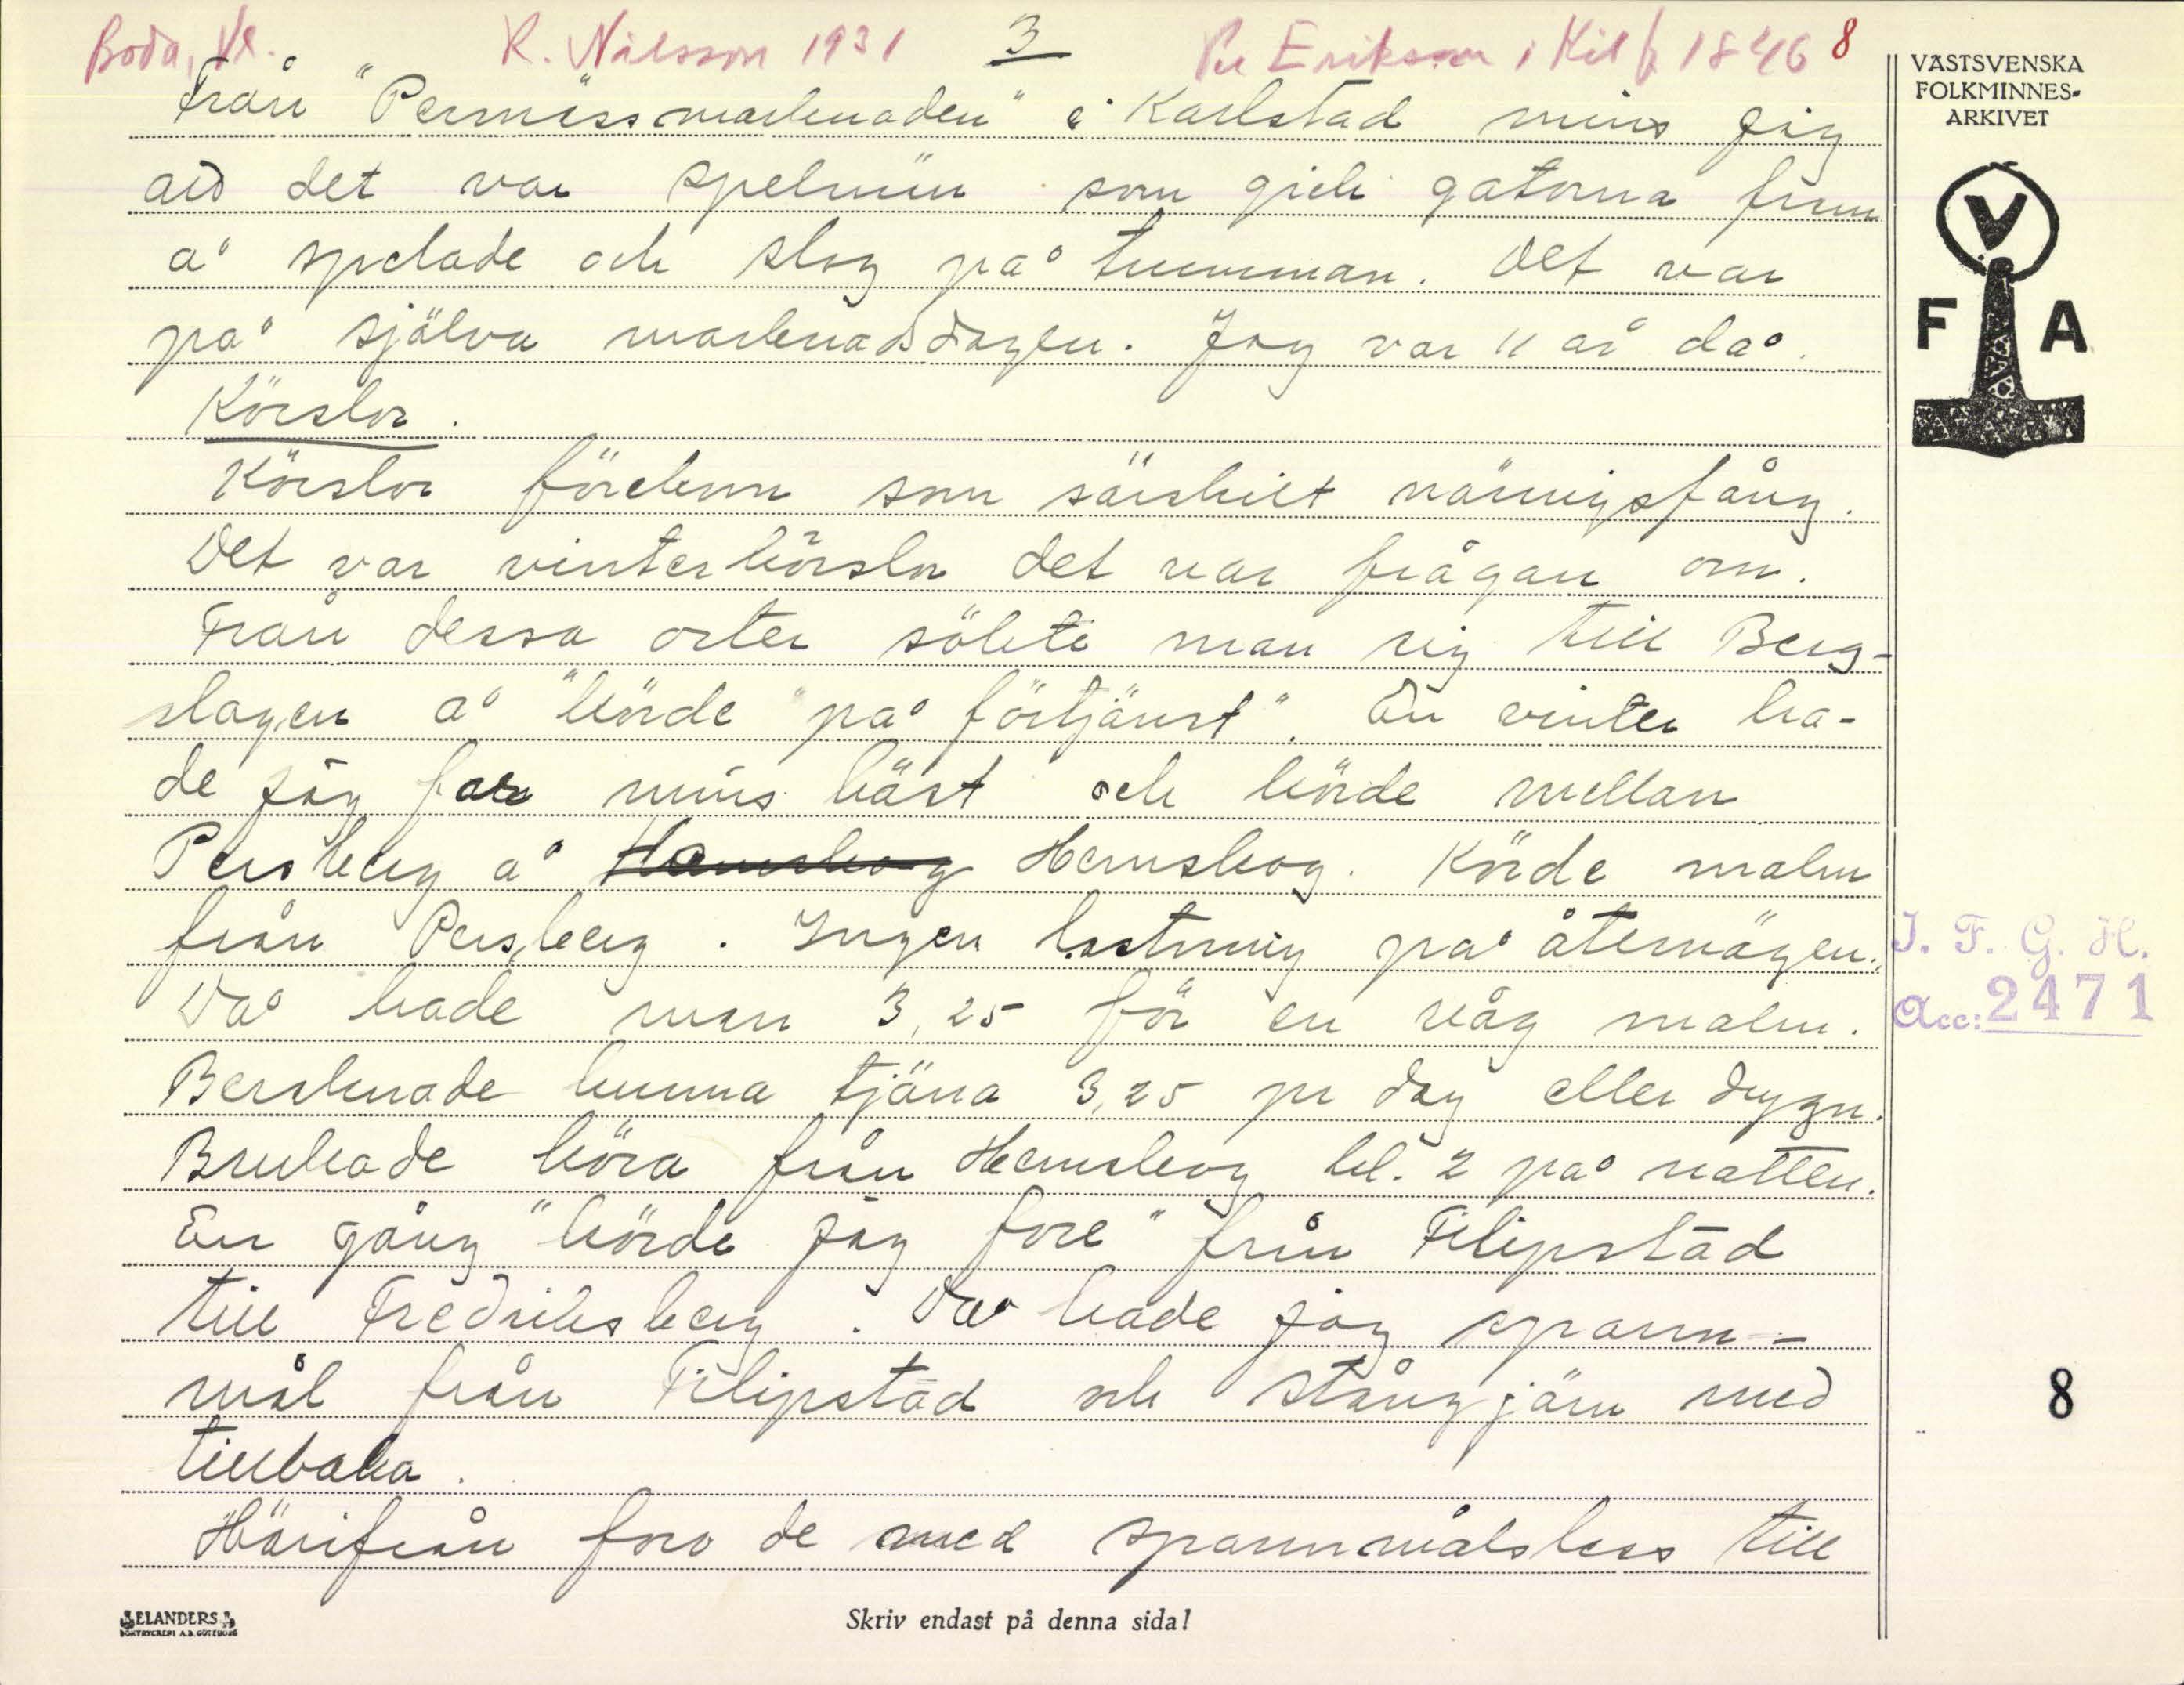 Boda, Vl. R. Nilsson 1931 3 Per Eriksson i Kil f. 1846 8
Från "Permissmarknaden" i Karlstad mins jag
att det var spelmän som gick gatorna fram
å spelade och slog på trumman. Det var
på själva marknadsdagen. Jag var 11 år då.
Körslor.
Körslor förekom som särskilt näringsfång.
Det var vinterkörslor det var frågan om.
Från dessa orter sökte man sig till Berg-
slagen å "körde "på förtjänst". En vinter ha-
de jag fars mins häst och körde mellan
Persberg å Hornskog. Körde malm
från Persberg. Ingen lastning på återvägen.
Då hade man 3,25 för en våg malm.
Beräknade kunna tjäna 3,25 pr dag eller dygn.
Brukade köra från Hornskog kl. 2 på natten.
En gång "körde jag fore" från Filipstad
till Fredriksberg. Då hade jag spann-
mål från Filipstad och stångjärn med
tillbaka.
Härifrån foro de med spannmålslass till
VÄSTSVENSKA
FOLKMINNES-
ARKIVET
V
F A
I. F. G. H.
Acc: 2471
8
ELANDERS
BOKTRYCKERI A.B. GÖTEBORG
Skriv endast på denna sida!